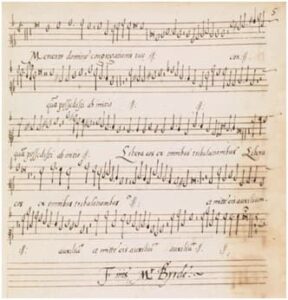 5
Memento domine congregationis tue :||: con :||:
quā possedisti ab initio :||: :||:
quā possedisti ab initio :||: Libera eos ex omnibus tribulationibus Libera
eos ex omnibus tribulationibus :||: et mitte eis auxilium
:||: auxiliū et mitte eis auxiliū auxiliū :||:
Finis Mr Byrde